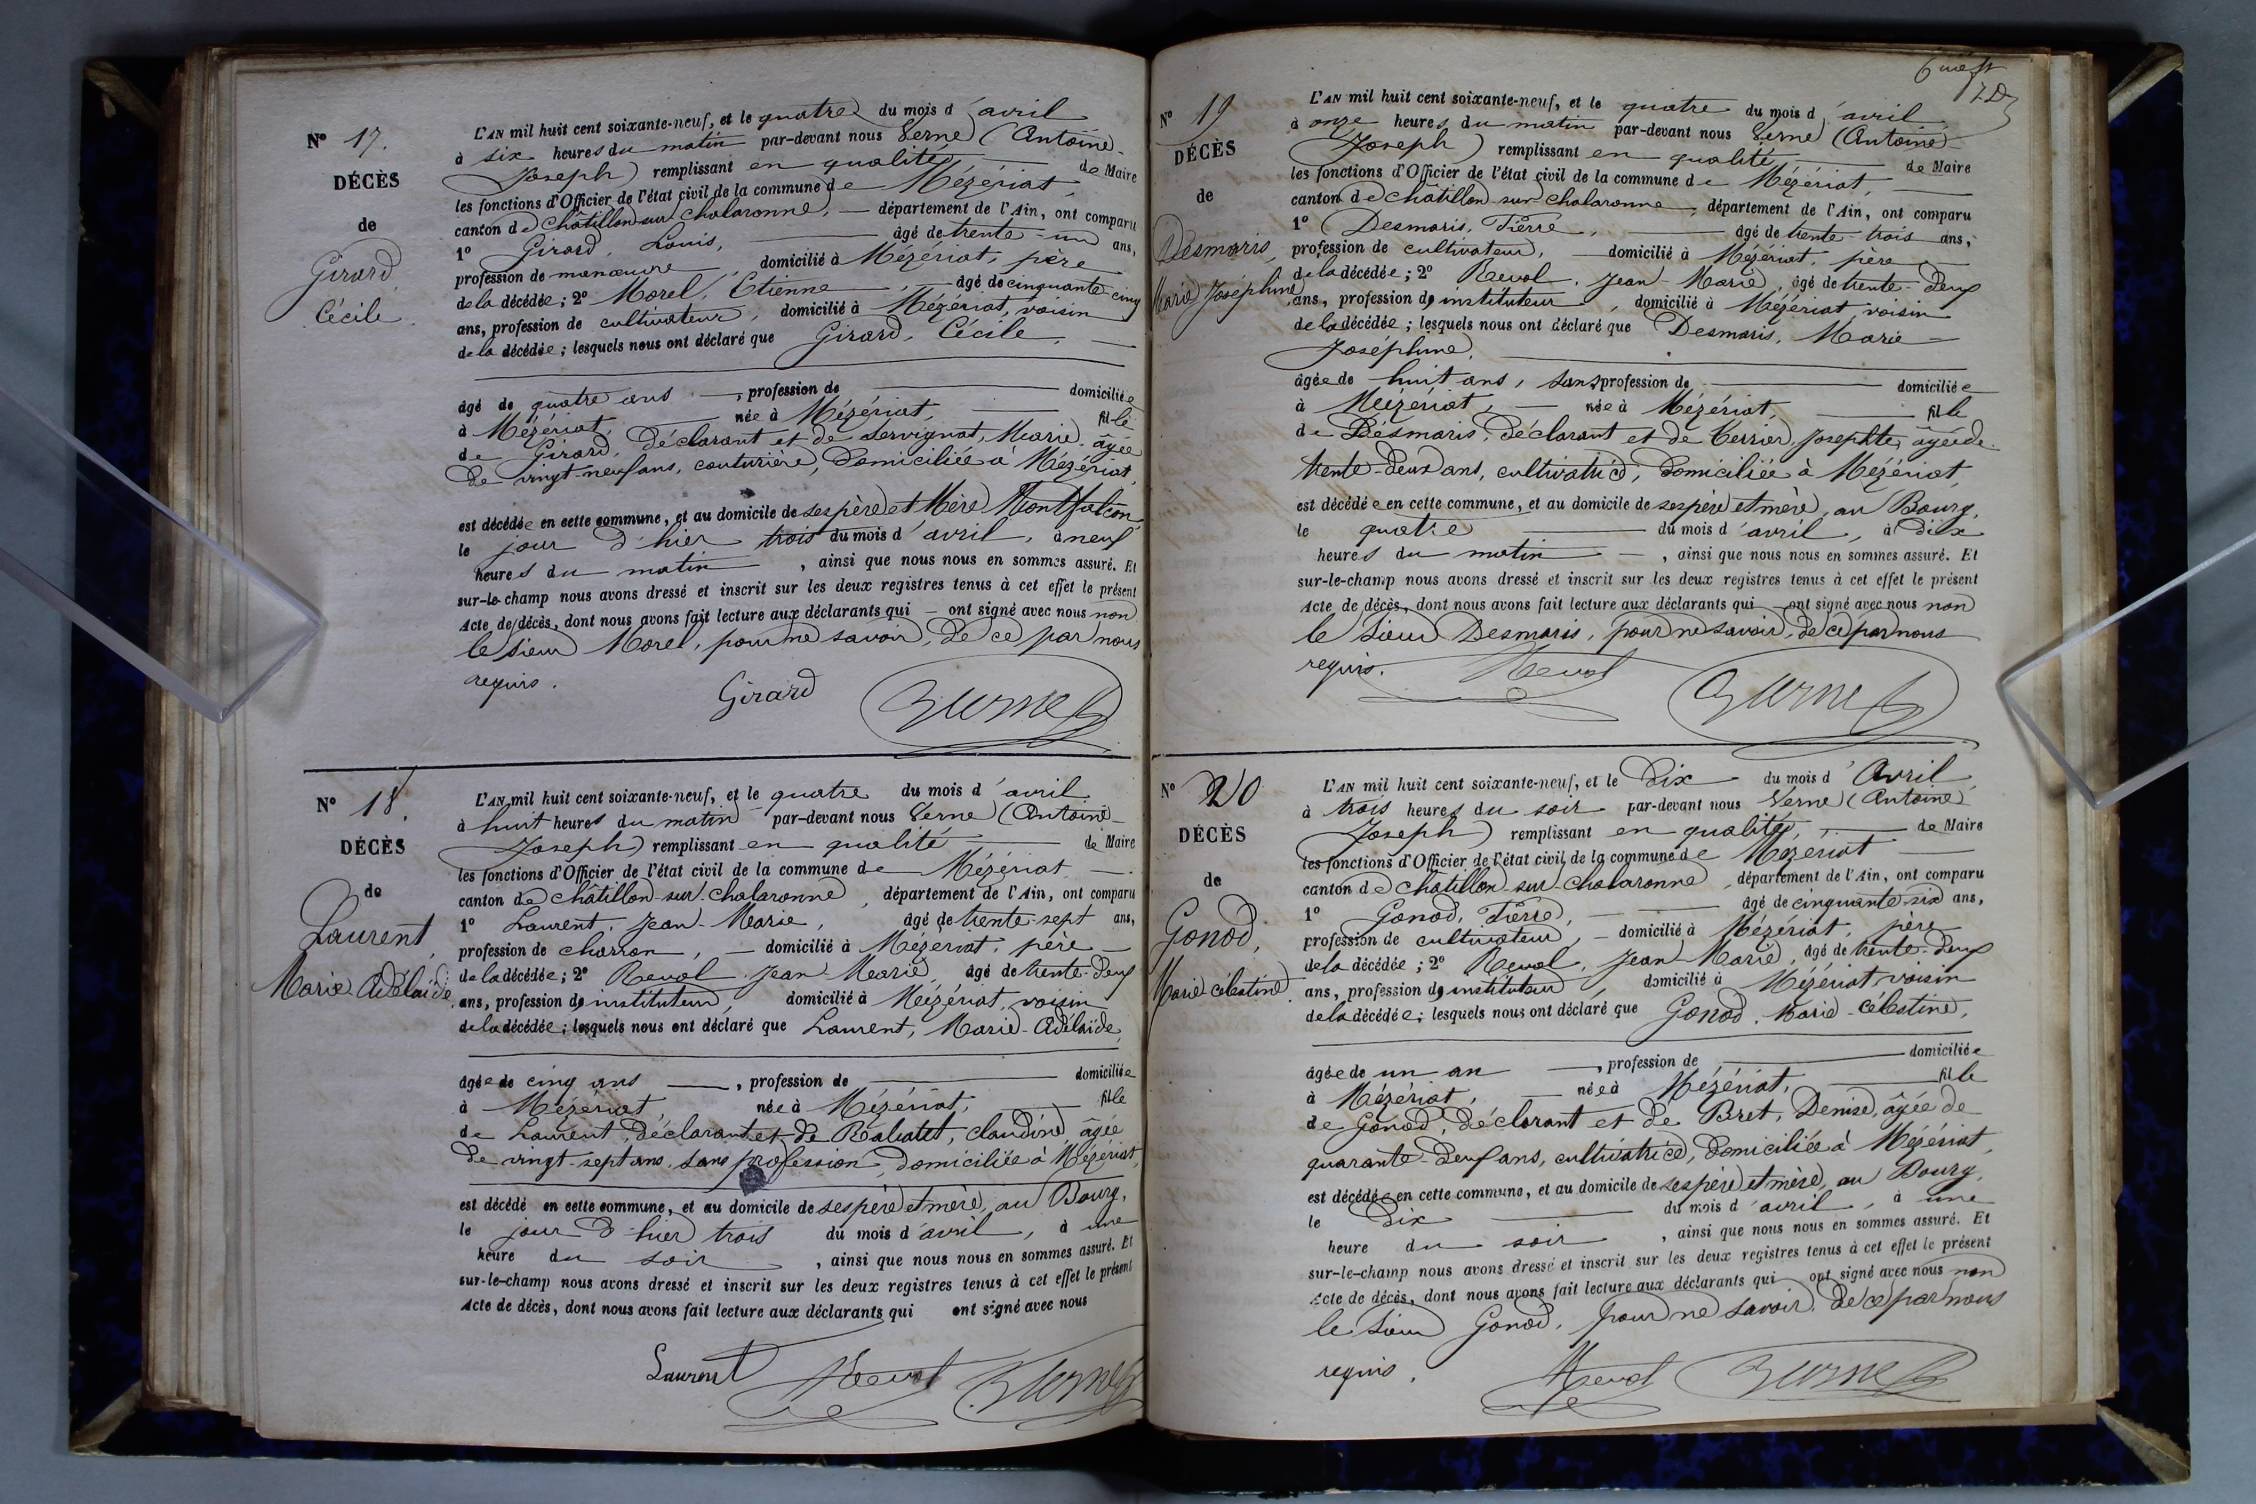 N° 17.
DÉCÈS
de
Girard,
Cécile
L'AN mil huit cent soixante-neuf, et le quatre du mois d'avril
à six heures du matin par-devant nous Verne (Antoine-
Joseph) remplissant en qualité de Maire
les fonctions d'Officier de l'état civil de la commune de Mézériat,
canton de Châtillon sur Chalaronne, département de l'Ain, ont comparu
1° Girard, Louis, âgé de trente-un ans,
profession de manœuvre, domicilié à Mézériat, père
de la décédée; 2° Morel, Etienne, âgé de cinquante cinq
ans, profession de cultivateur, domicilié à Mézériat, voisin
de la décédée; lesquels nous ont déclaré que Girard, Cécile,
âgé de quatre ans, profession de domiciliée
à Mézériat, née à Mézériat, fille
de Girard, déclarant et de Servignat, Marie, âgée
de vingt-neuf ans, couturière, domiciliée à Mézériat,
est décédée en cette commune, et au domicile de ses père et Mère Montfalcon,
le jour d'hier trois du mois d'avril, à neuf
heures du matin, ainsi que nous nous en sommes assuré. Et
sur-le-champ nous avons dressé et inscrit sur les deux registres tenus à cet effet le présent
Acte de décès, dont nous avons fait lecture aux déclarants qui ont signé avec nous non
le sieur Morel, pour ne savoir, de ce par nous
requis.
Girard Verne
N° 18.
DÉCÈS
de
Laurent,
Marie Adélaïde.
L'AN mil huit cent soixante-neuf, et le quatre du mois d'avril
à huit heures du matin par-devant nous Verne (Antoine-
Joseph) remplissant en qualité de Maire
les fonctions d'Officier de l'état civil de la commune de Mézériat
canton de Châtillon-sur-Chalaronne, département de l'Ain, ont comparu
1° Laurent, Jean-Marie, âgé de trente-sept ans,
profession de charron, domicilié à Mézériat, père
de la décédée; 2° Revol, Jean-Marie, âgé de trente-deux
ans, profession de instituteur, domicilié à Mézériat, voisin
de la décédée; lesquels nous ont déclaré que Laurent, Marie-Adélaïde,
âgée de cinq ans, profession de domiciliée
à Mézériat, née à Mézériat, fille
de Laurent, déclarant et de claudine âgée
de vingt-sept ans, sans profession, domiciliée à Mézériat,
est décédé en cette commune, et au domicile de ses père et mère, au Bourg,
le jour d'hier trois du mois d'avril, à une
heure du soir, ainsi que nous nous en sommes assuré. Et
sur-le-champ nous avons dressé et inscrit sur les deux registres tenus à cet effet le présent
Acte de décès, dont nous avons fait lecture aux déclarants qui ont signé avec nous
Laurent Revol Verne
N° 19
DÉCÈS
de
Desmaris,
Marie Joséphine
L'AN mil huit cent soixante-neuf, et le quatre du mois d'avril
à onze heures du matin par-devant nous Verne (Antoine-
Joseph) remplissant en qualité de Maire
les fonctions d'Officier de l'état civil de la commune de Mézériat,
canton de Châtillon sur Chalaronne, département de l'Ain, ont comparu
1° Desmaris, Pierre, âgé de trente-trois ans,
profession de cultivateur, domicilié à Mézériat, père
de la décédée; 2° Revol, Jean-Marie, âgé de trente-deux
ans, profession de instituteur, domicilié à Mézériat, voisin
de la décédée; lesquels nous ont déclaré que Desmaris, Marie-
Joséphine,
âgée de huit ans, sans profession de domiciliée
à Mézériat, née à Mézériat, fille
de Desmaris, déclarant et de Terrier, Josephte, âgée de
trente-deux ans, cultivatrice, domiciliée à Mézériat,
est décédée en cette commune, et au domicile de ses père et mère, au Bourg,
le quatre du mois d'avril, à dix
heures du matin, ainsi que nous nous en sommes assuré. Et
sur-le-champ nous avons dressé et inscrit sur les deux registres tenus à cet effet le présent
Acte de décès, dont nous avons fait lecture aux déclarants qui ont signé avec nous non
le sieur Desmaris, pour ne savoir, de ce par nous
requis. Revol Verne
N° 20
DÉCÈS
de
Gonod,
Marie célestine.
L'AN mil huit cent soixante-neuf, et le dix du mois d'Avril,
à trois heures du soir par-devant nous Verne (Antoine-
Joseph) remplissant en qualité, de Maire
les fonctions d'Officier de l'état civil de la commune de Mézériat
canton de Châtillon-sur-Chalaronne, département de l'Ain, ont comparu
1° Gonod, Pierre, âgé de cinquante-six ans,
profession de cultivateur, domicilié à Mézériat, père
de la décédée; 2° Revol, Jean-Marie, âgé de trente-deux
ans, profession de instituteur, domicilié à Mézériat voisin
de la décédée; lesquels nous ont déclaré que Gonod, Marie-célestine,
âgée de un an, profession de domiciliée
à Mézériat, née à Mézériat, fille
de Gonod, déclarant et de Benise, âgée de
quarante-deux ans, cultivatrice, domiciliée à Mézériat,
est décédée en cette commune, et au domicile de ses père et mère, au Bourg,
le dix du mois d'avril, à une
heure du soir, ainsi que nous nous en sommes assuré. Et
sur-le-champ nous avons dressé et inscrit sur les deux registres tenus à cet effet le présent
Acte de décès, dont nous avons fait lecture aux déclarants qui ont signé avec nous non
le sieur Gonod, pour ne savoir, de ce par nous
requis. Revol Verne